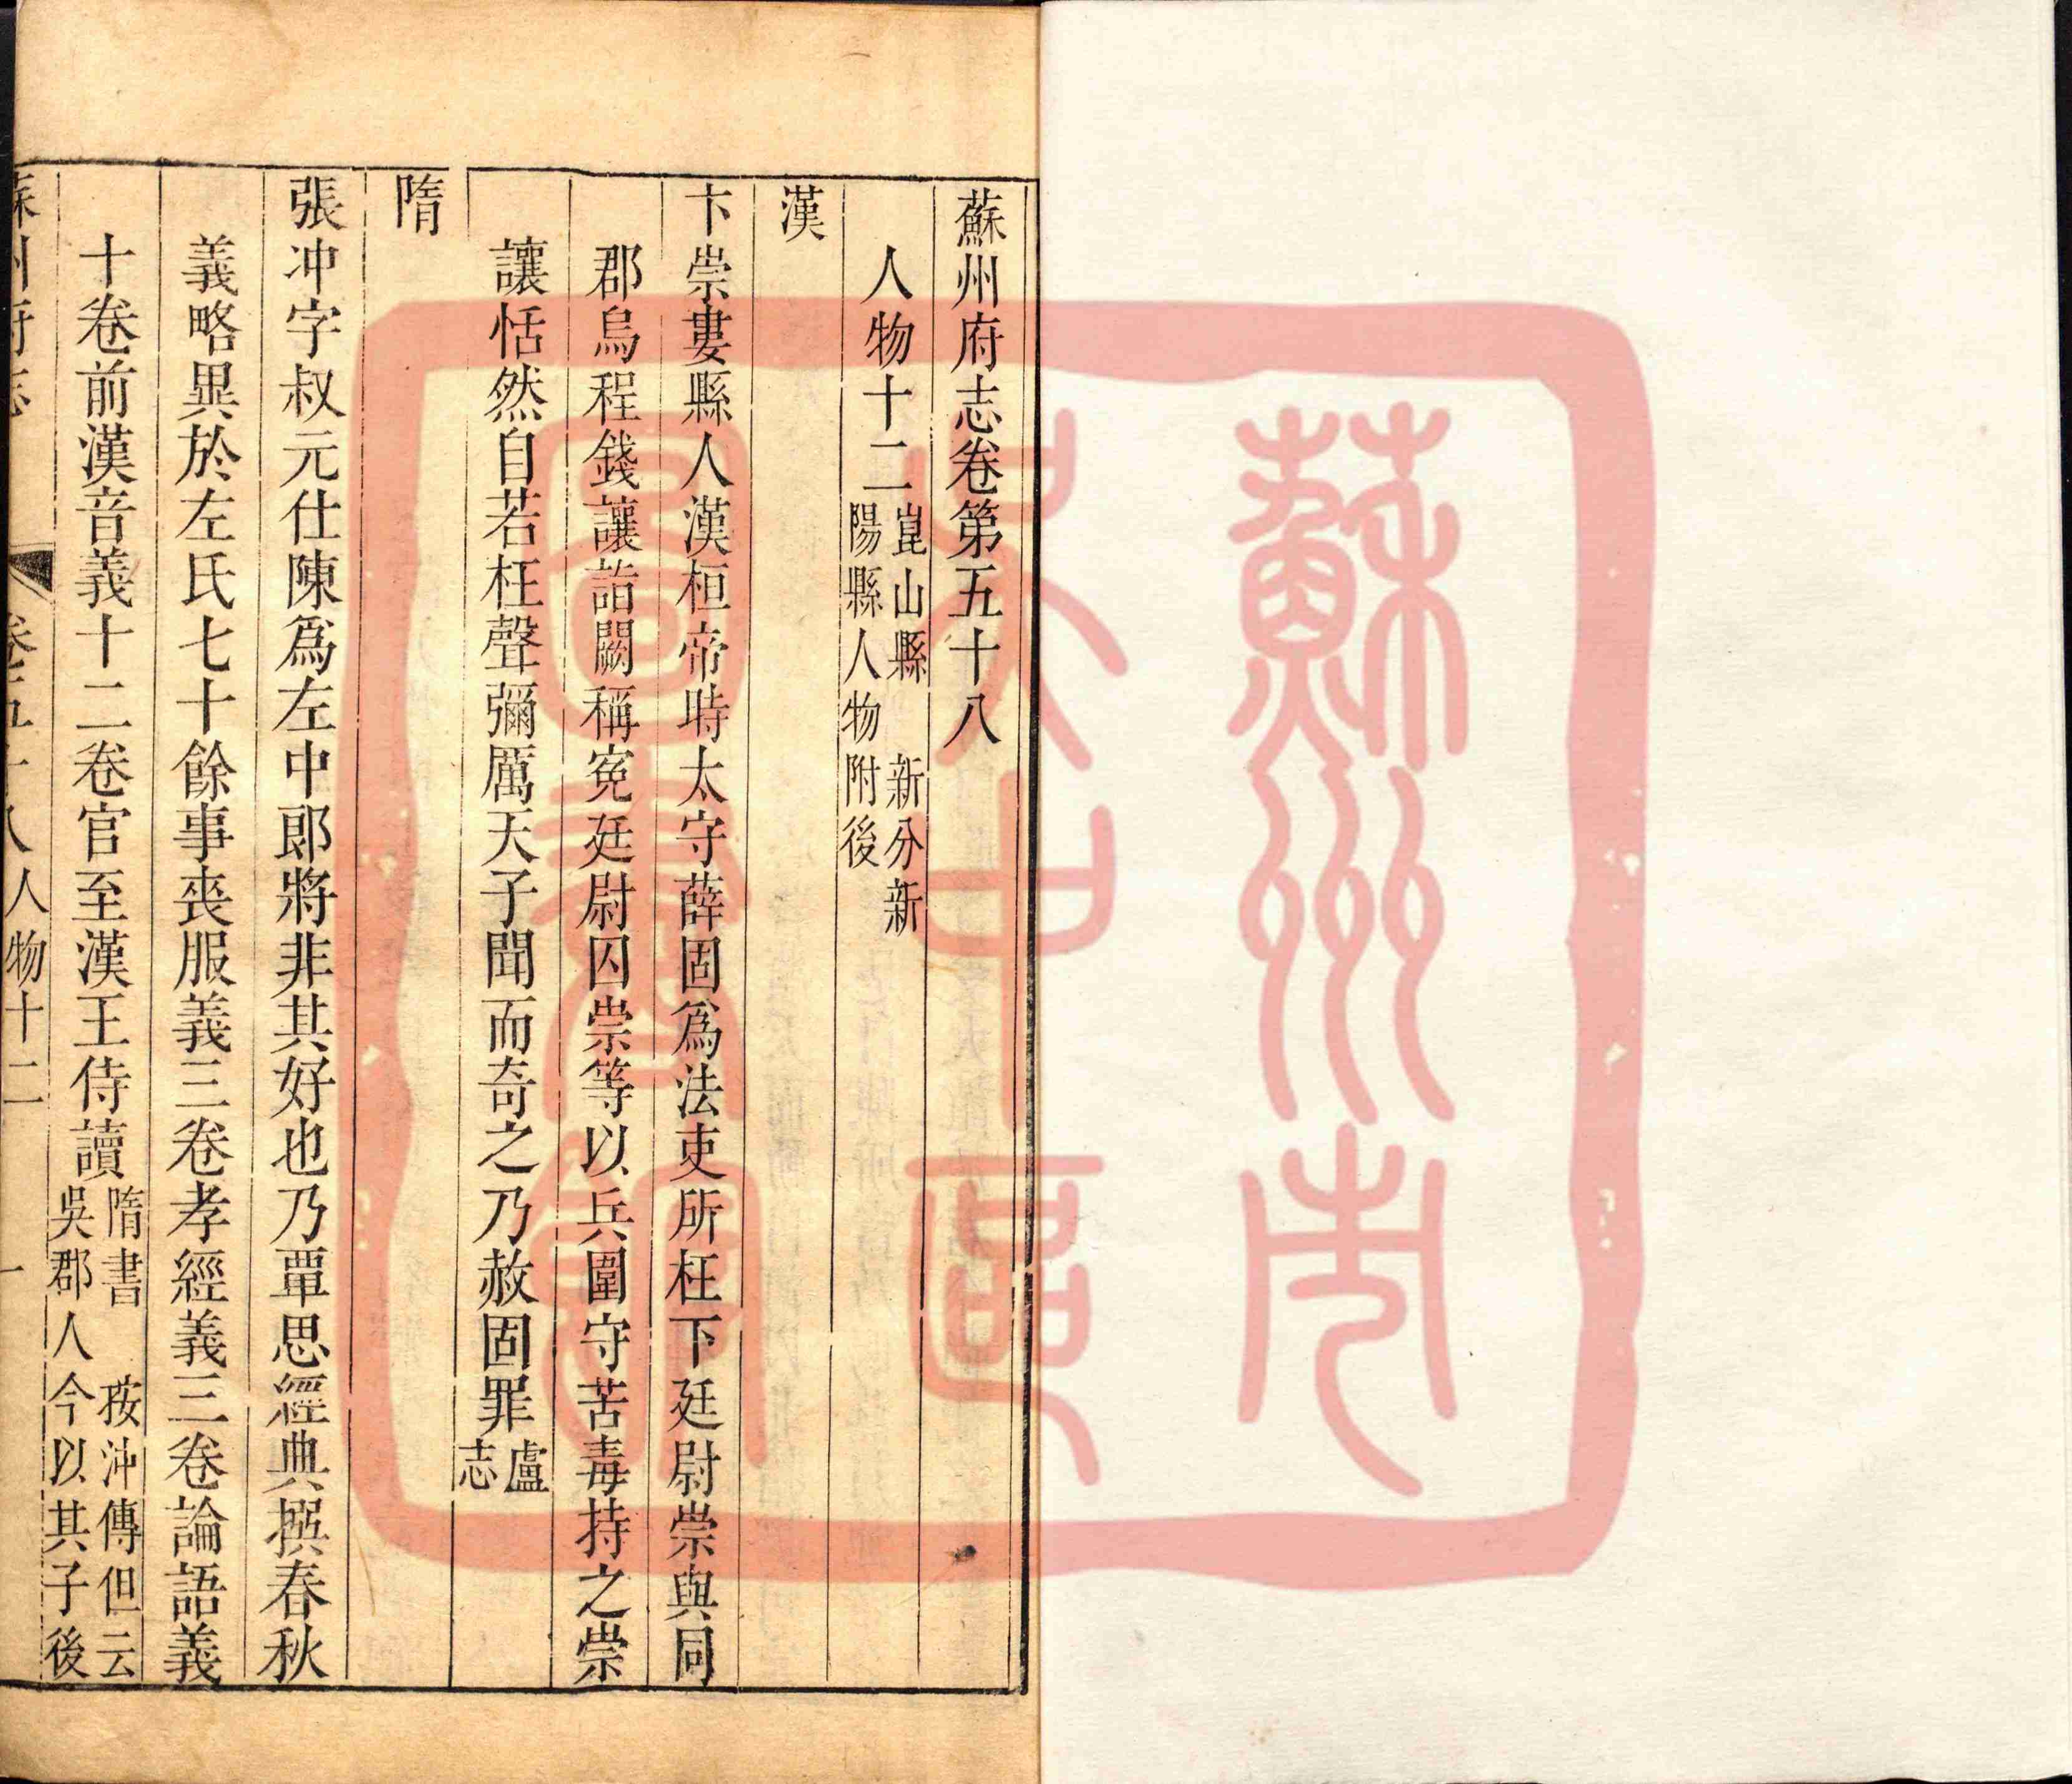 蘇州市
吳中區
圖書館
蘇州府志卷第五十八
人物十二崑山縣　新分新
陽縣人物附後
漢
卞崇婁縣人漢桓帝時太守薛固爲法吏所枉下廷尉崇與同
郡烏程錢讓詣闕稱寃廷尉囚崇等以兵圍守苦毒持之崇
讓恬然自若枉聲彌厲天子聞而奇之乃赦固罪盧
志
隋
張冲字叔元仕陳爲左中郎將非其好也乃覃思經典撰春秋
義略異於左氏七十餘事喪服義三卷孝經義三卷論語義
十卷前漢音義十二卷官至漢王侍讀隋書　按沖傳但云
吳郡人今以其子後
蘇州府志　卷五十八人物十二　一